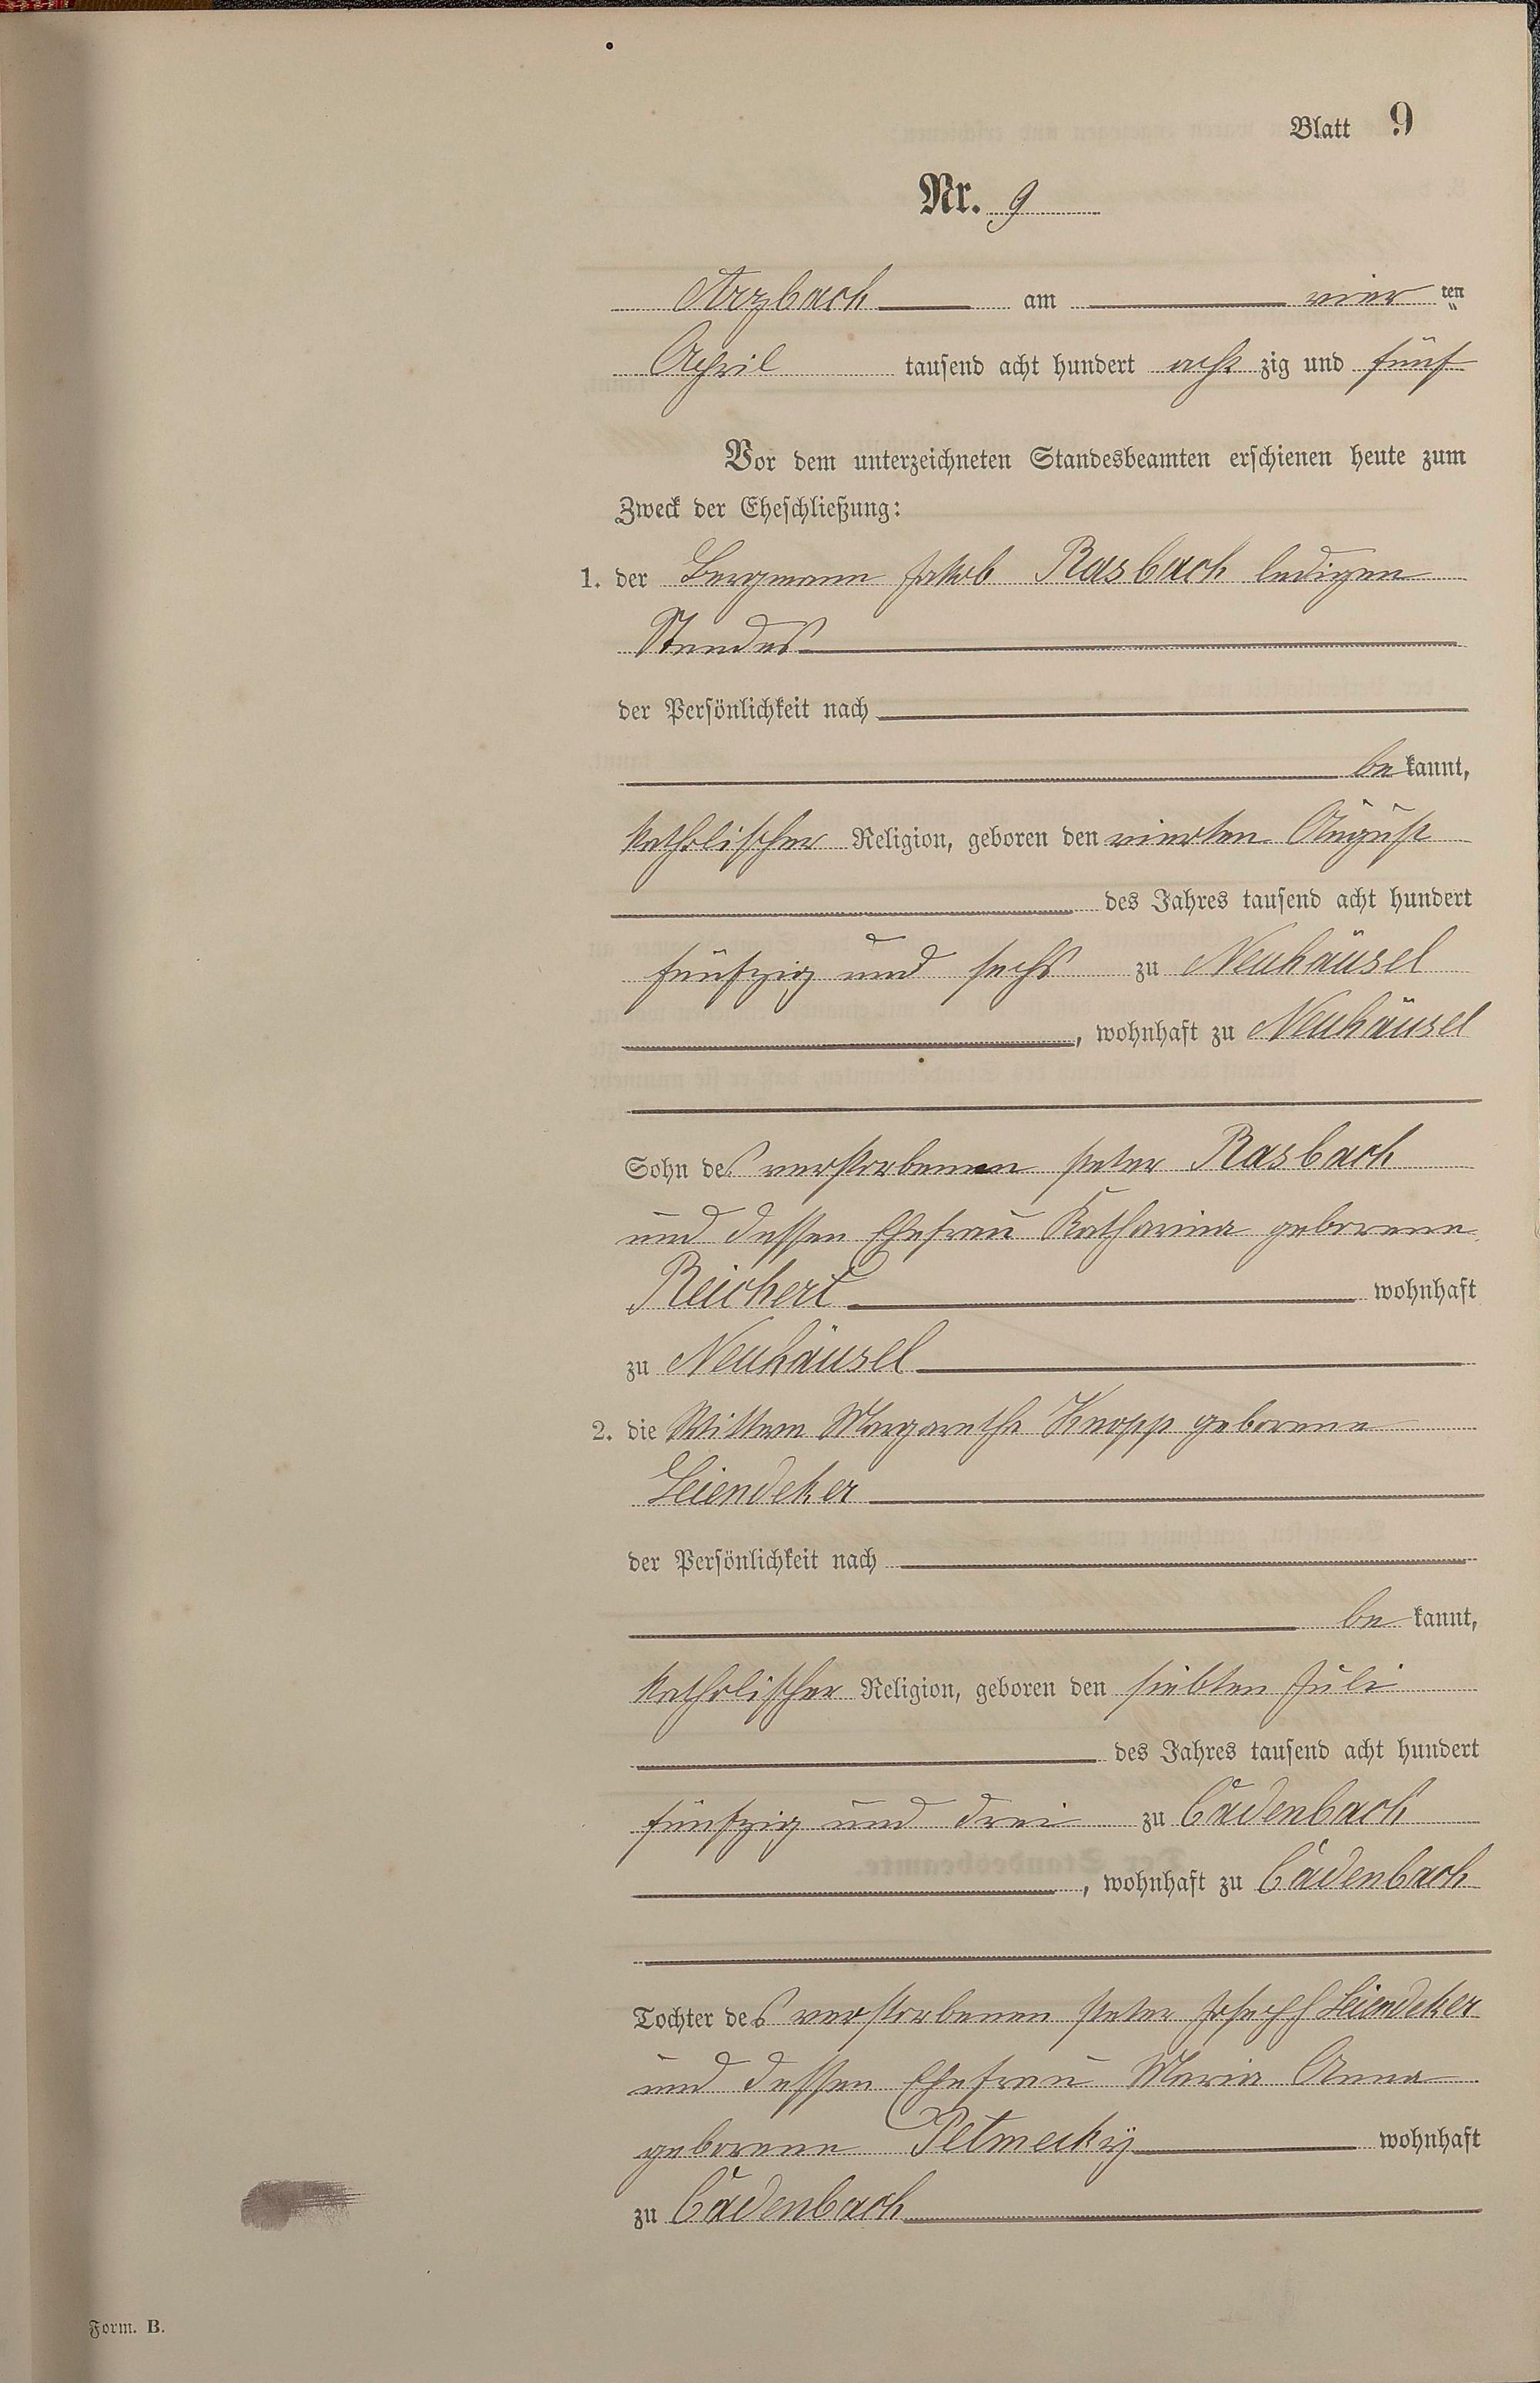 Blatt 9
Nr. 9
Arzbach am vier ten
April tausend acht hundert acht zig und fünf
Vor dem unterzeichneten Standesbeamten erschienen heute zum
Zweck der Eheschließung:
1. der Bergmann Jakob Rasbach ledigen
Standes
der Persönlichkeit nach
be kannt,
katholischer Religion, geboren den vierten August
des Jahres tausend acht hundert
fünfzig und sechs zu Neuhäusel
, wohnhaft zu Neuhäusel
Sohn des verstorbenen Peter Rasbach
und dessen Ehefrau Katharina geborene
Reichert wohnhaft
zu Neuhäusel
2. die Wittwe Margaretha Knopp geborene
Leiendeker
der Persönlichkeit nach
be kannt,
katholischer Religion, geboren den siebten Juli
des Jahres tausend acht hundert
fünfzig und drei zu Cadenbach
, wohnhaft zu Cadenbach
Tochter des verstorbenen Peter Joseph Leiendeker
und dessen Ehefrau Maria Anna
geborene Petmecky wohnhaft
zu Cadenbach
Form. B.